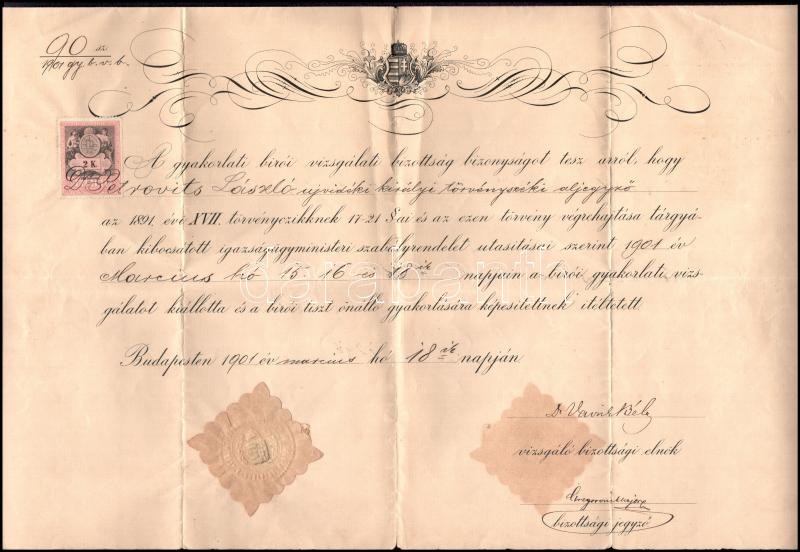 90 sz
1901 gy. b. v. b.
2 K.
A gyakorlati birói vizsgálati bizottság bizonyságot tesz arról, hogy
Dr Petrovits László ujvidéki királyi törvényszéki aljegyző
az 1891. évi XVII. törvényczikknek 17-21 §ai és az ezen törvény végrehajtása tárgyá-
ban kibocsátott igazságügyministeri szabályrendelet utasításai szerint 1901 év
Marczius hó 15. 16 és 18 ik napjain a birói gyakorlati vizs-
gálatot kiállotta és a birói tiszt önálló gyakorlására képesitettnek itéltetett.
darabanth
Budapesten 1901 év marczius hó 18 ik napján
Dr Vavrik Béla
vizsgáló bizottsági elnök
bizottsági jegyző